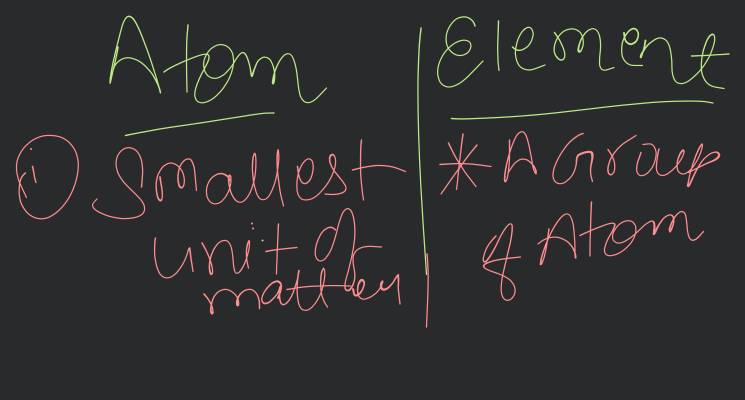 Atom
Element
(i) Smallest
unit of
matter
* A Group
of Atom